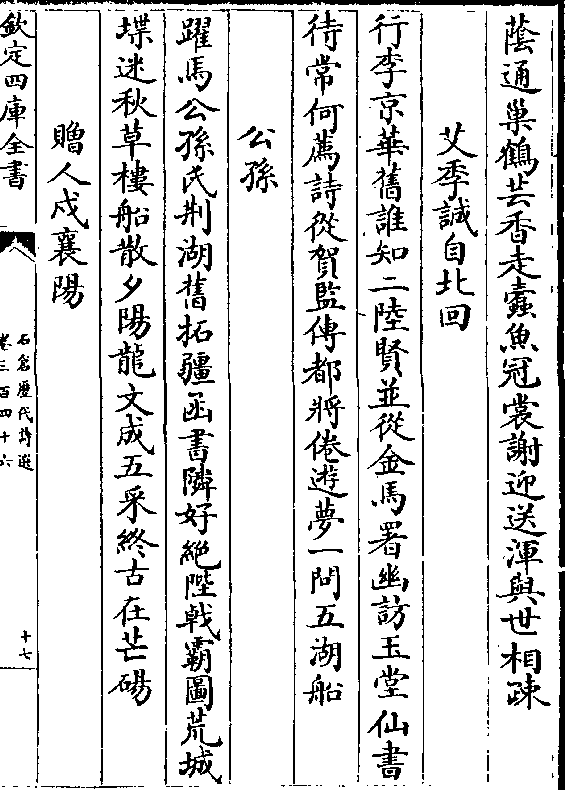 蔭通巢鶴芸香走蠹魚冠裳謝迎送渾與世相疎
艾季誠自北回
行李京華舊誰知二陸賢並從金馬署幽訪玉堂仙書
待常何薦詩從賀監傳都將倦遊夢一問五湖船
公孫
躍馬公孫氏荆湖舊拓疆函書隣好絶陛戟霸圖荒城
堞迷秋草樓船散夕陽龍文成五采終古在芒碭
贈人戍襄陽
欽定四庫全書
石倉歷代詩選
卷三百四十六
十七